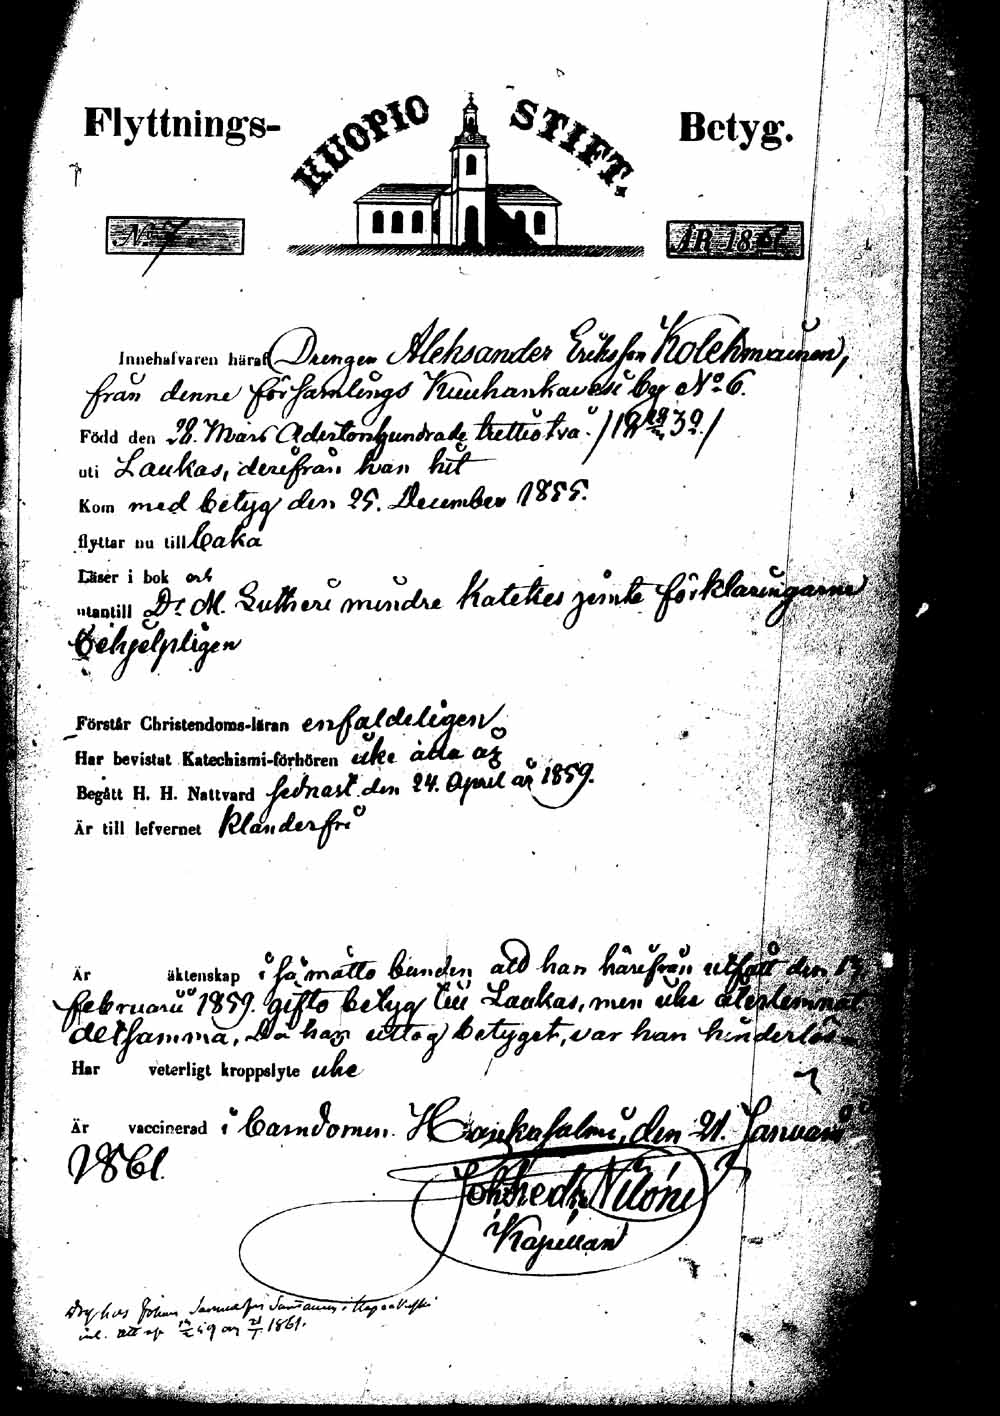 Flyttnings- KUOPIO STIFT. Betyg.
No 7 ÅR 1861.
Innehafvaren häraf Drengen Aleksander Eriksson Kolehmainen,
från denne församlings Kuuhankavesi by No 6.
Född den 28. Mars Adertonhundrade trettiotvå. /18 28/3 32./
uti Laukas, derifrån han hit
Kom med betyg den 25. December 1855.
flyttar nu till
Läser i bok och
utantill Dr M. Lutheri mindre Katekes jemte förklaringarne
behjelpligen
Förstår Christendoms-läran enfaldeligen
Har bevistat Katechismi-förhören icke alla år
Begått H. H. Nattvard sednast den 24. April år 1859.
Är till lefvernet klanderfri
Är äktenskap i så måtto bunden att han härifrån uttagit den 13
Februarii 1859. gifto betyg till Laukas, men icke återlemnat
detsamma, Då han uttog betyget, var han hinderlös.
Har veterligt kroppslyte icke
Är vaccinerad i barndomen. Hankasalmi, den 21. Januarii
1861.
Kapellan
Johan
1861.